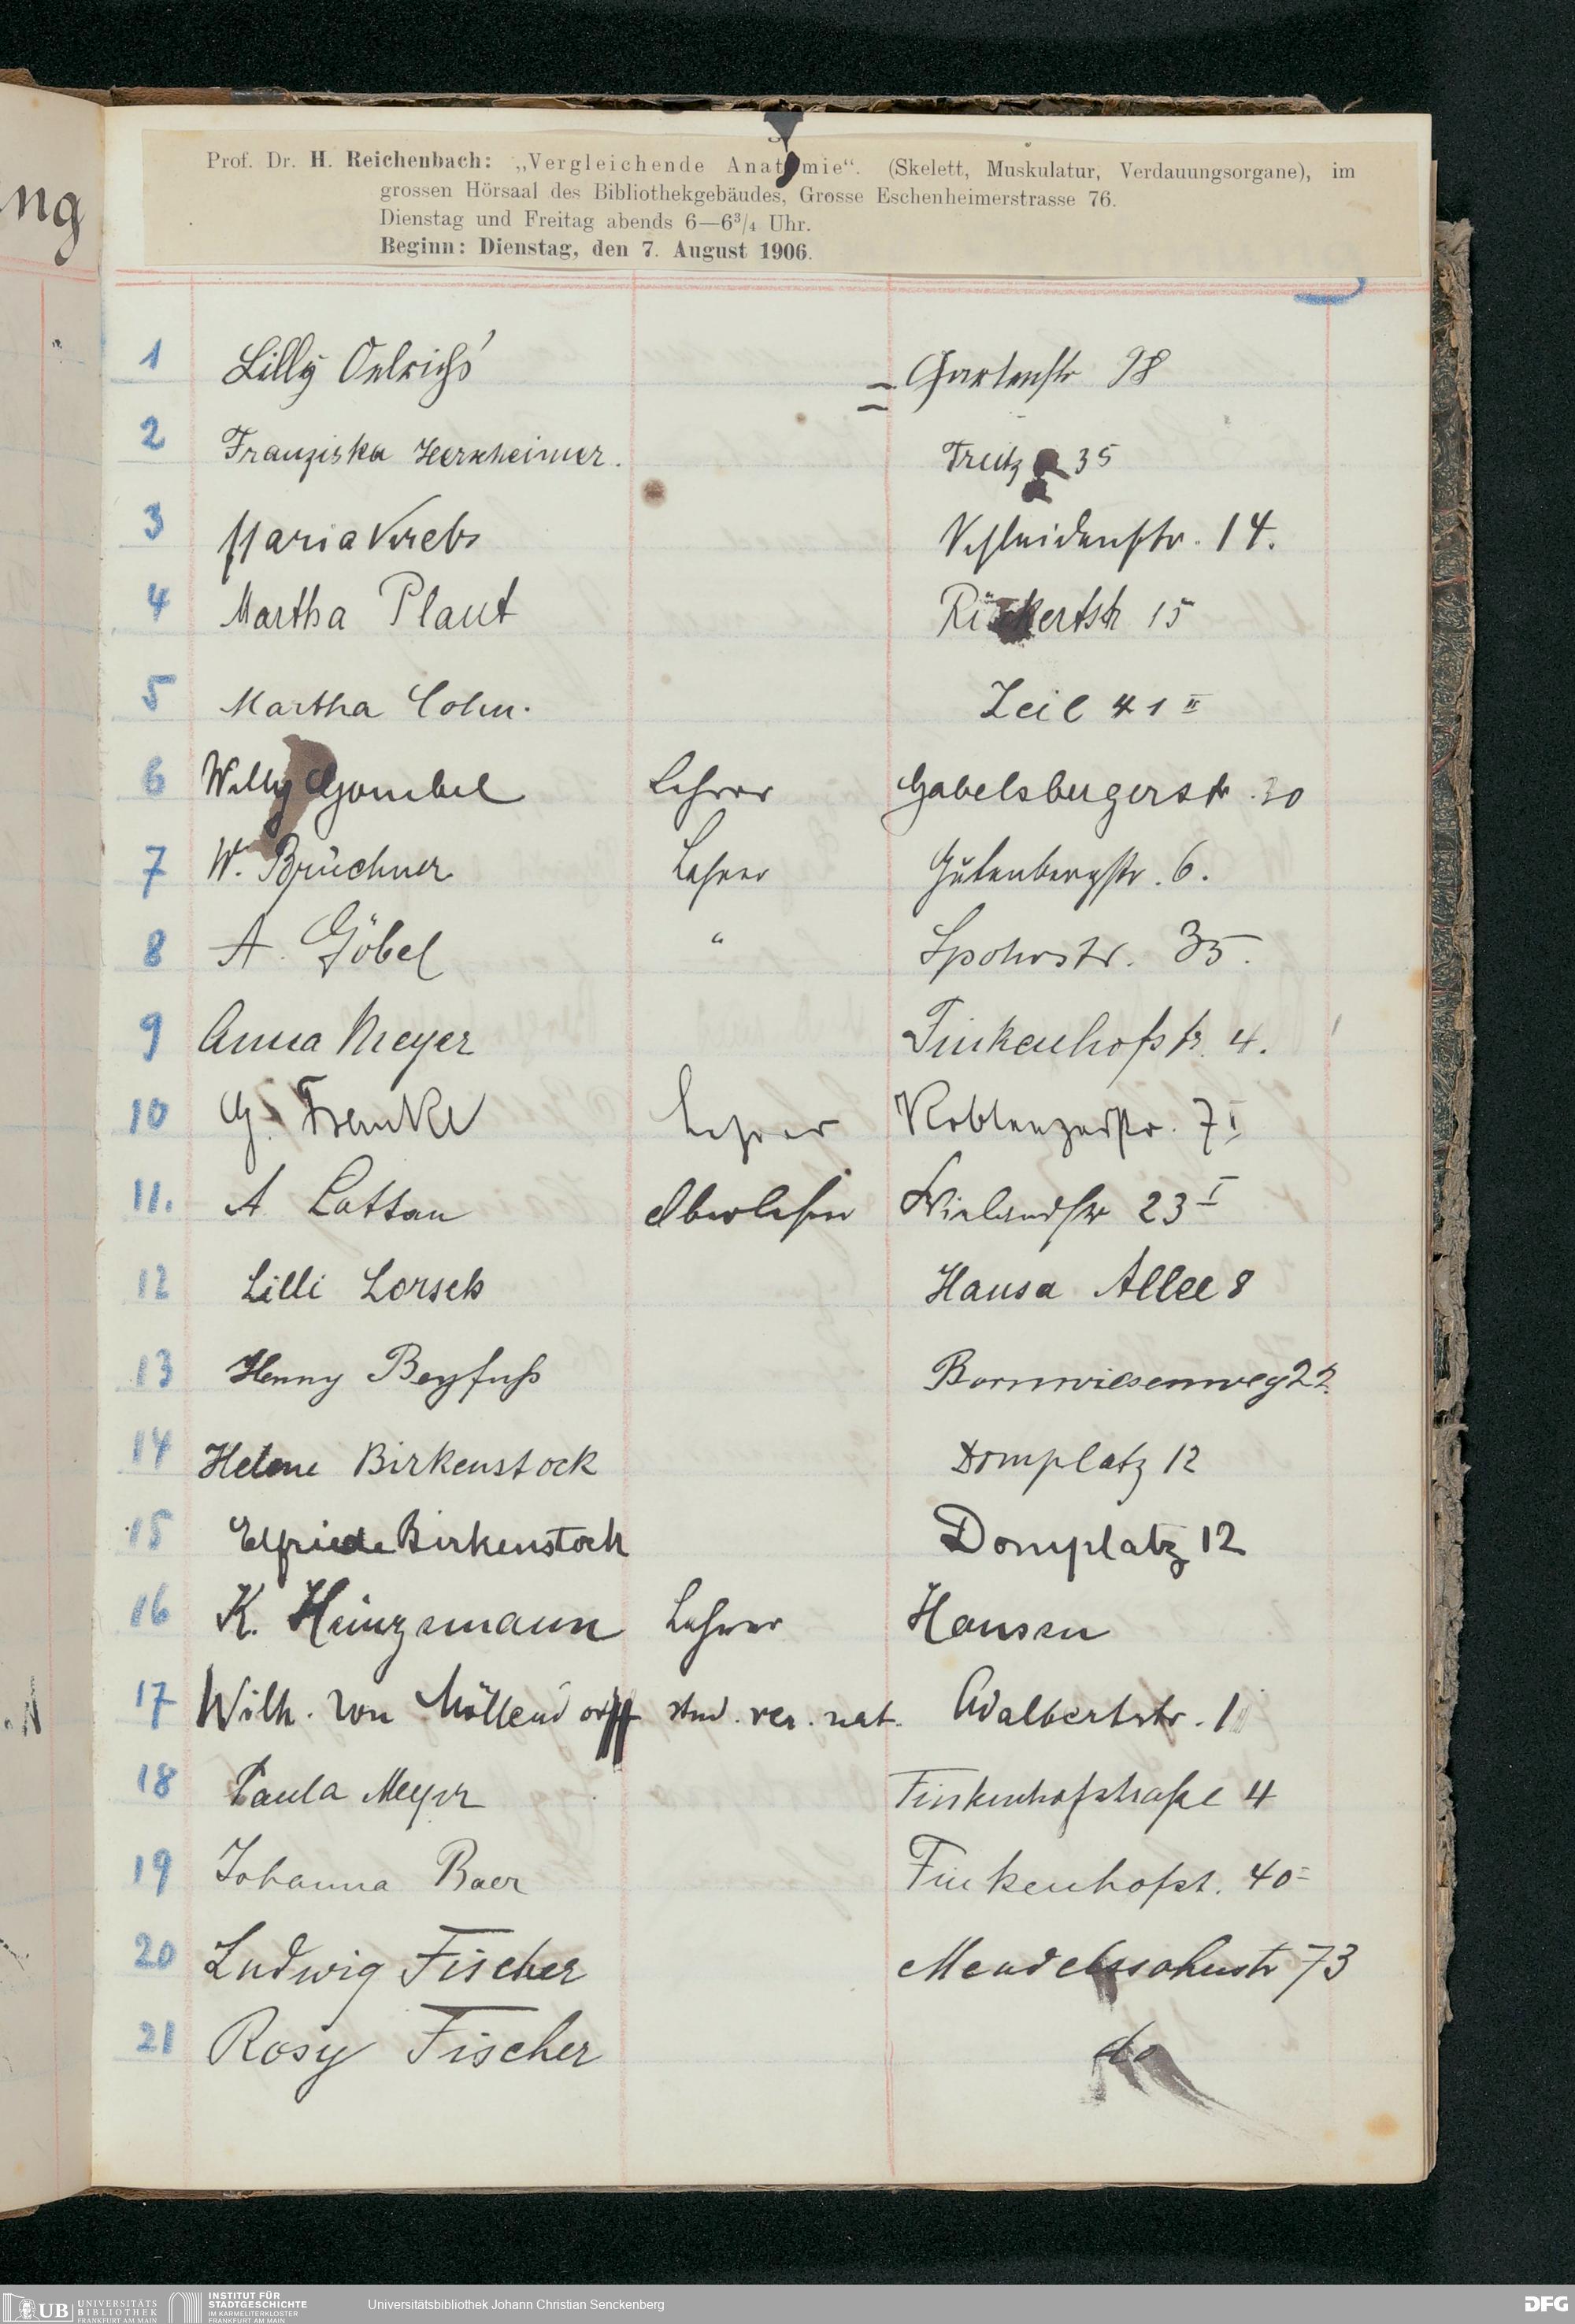 ng
Prof. Dr. H. Reichenbach: „Vergleichende Anatomie“. (Skelett, Muskulatur, Verdauungsorgane), im
grossen Hörsaal des Bibliothekgebäudes, Grosse Eschenheimerstrasse 76.
Dienstag und Freitag abends 6—6³/₄ Uhr.
Beginn: Dienstag, den 7. August 1906.
1 Lilly Oelrichs Gartenstr 98
2 Franziska Herxheimer. Treutz 35
3 Maria Krebs Schleidenstr. 14.
4 Martha Plaut Rückertstr 15
5 Martha Cohn. Zeil 41 II
6 Willy Gombel Lehrer Gabelsbergerstr. 30
7 W. Brüchner Lehrer Gutenbergstr. 6.
8 A. Göbel " Spohrstr. 35.
9 Anna Meyer Finkenhofstr. 4.
10 G. Franke Lehrer Koblenzerstr. 7 I
11. A Lottau Oberlehrer Wielandstr 23 I
12 Lilli Lorsch Hansa Allee 8
13 Henny Beyfuß Bornwiesenweg 22
14 Helene Birkenstock Domplatz 12
15 Elfriede Birkenstock Domplatz 12
16 K. Heinzemann Lehrer Hausen
17 Wilh. von Möllendorff stud. rer. nat. Adalbertstr. 1
18 Paula Meyer Finkenhofstraße 4
19 Johanna Baer Finkenhofst. 40
20 Ludwig Fischer Mendelssohnstr 73
21 Rosy Fischer do
UB UNIVERSITÄTS
BIBLIOTHEK
FRANKFURT AM MAIN
INSTITUT FÜR
STADTGESCHICHTE
IM KARMELITERKLOSTER
FRANKFURT AM MAIN
Universitätsbibliothek Johann Christian Senckenberg
DFG